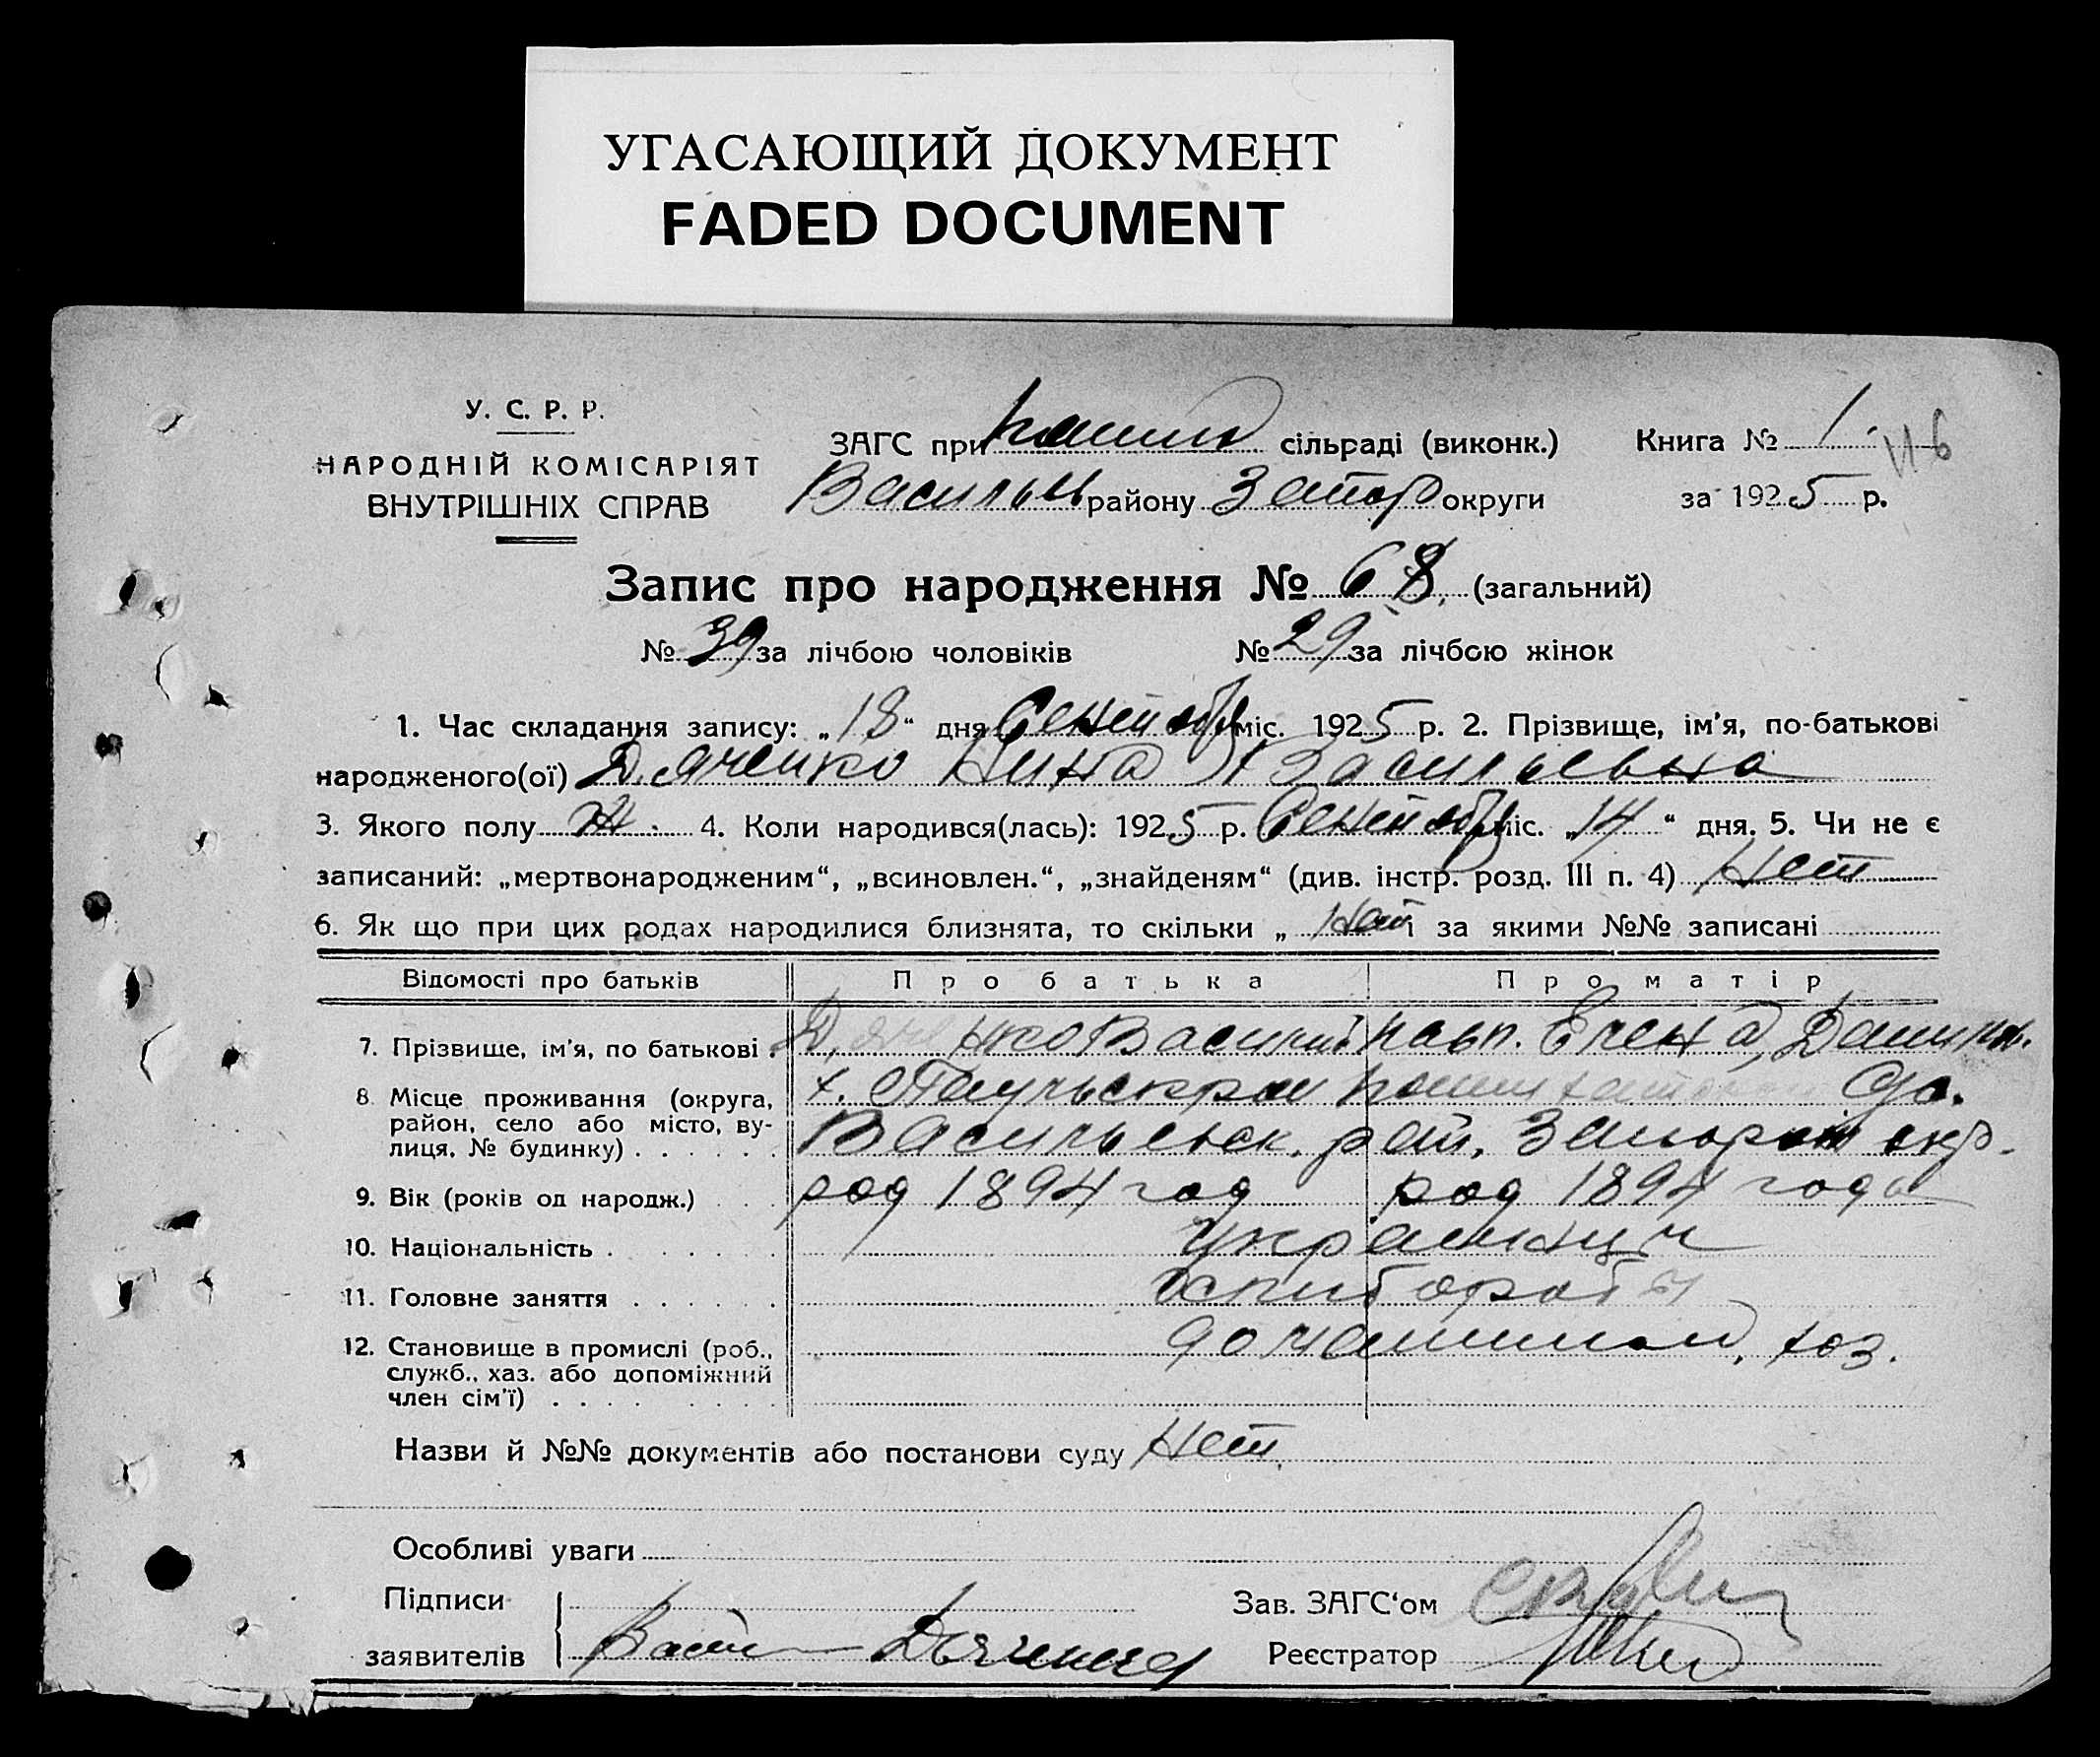 УГАСАЮЩИЙ ДОКУМЕНТ
FADED DOCUMENT
У. С. Р. Р.
НАРОДНІЙ КОМІСАРІЯТ
ВНУТРІШНІХ СПРАВ
ЗАГС при сільраді (виконк.)
Васильев району Запор округи
Книга № 1.
116
за 1925 р.
Запис про народження № 68. (загальний)
№ 39 за лічбою чоловіків № 29 за лічбою жінок
1. Час складання запису: „18“ дня Сентября міс. 1925 р. 2. Прізвище, ім’я, по-батькові
народженого(ої) Дяченко Нина Васильевна
3. Якого полу ж. 4. Коли народився(лась): 1925 р. Сентября міс. „14“ дня. 5. Чи не є
записаний: „мертвонародженим“, „всиновлен.“, „знайденям“ (див. інстр. розд. III п. 4) Нет
6. Як що при цих родах народилися близнята, то скільки „ Нет і за якими №№ записані
Відомості про батьків Про батька Про матір
7. Прізвище, ім’я, по батькові . Дяченко Василий Елена
8. Місце проживання (округа, район, село або місто, вулиця, № будинку) . . . . . х.
Васильевск. рай. Запорож окр.
9. Вік (років од народж.) . . . род 1894 год род 1894 года
10. Національність . . . . . . украинци
11. Головне заняття . . . . . хлібороби
12. Становище в промислі (роб., служб., хаз. або допоміжний член сім’ї) . . . . домашнем, хоз.
Назви й №№ документів або постанови суду Нет.
Особливі уваги
Підписи
заявителів Дяченко
Зав. ЗАГС‘ом
Реєстратор